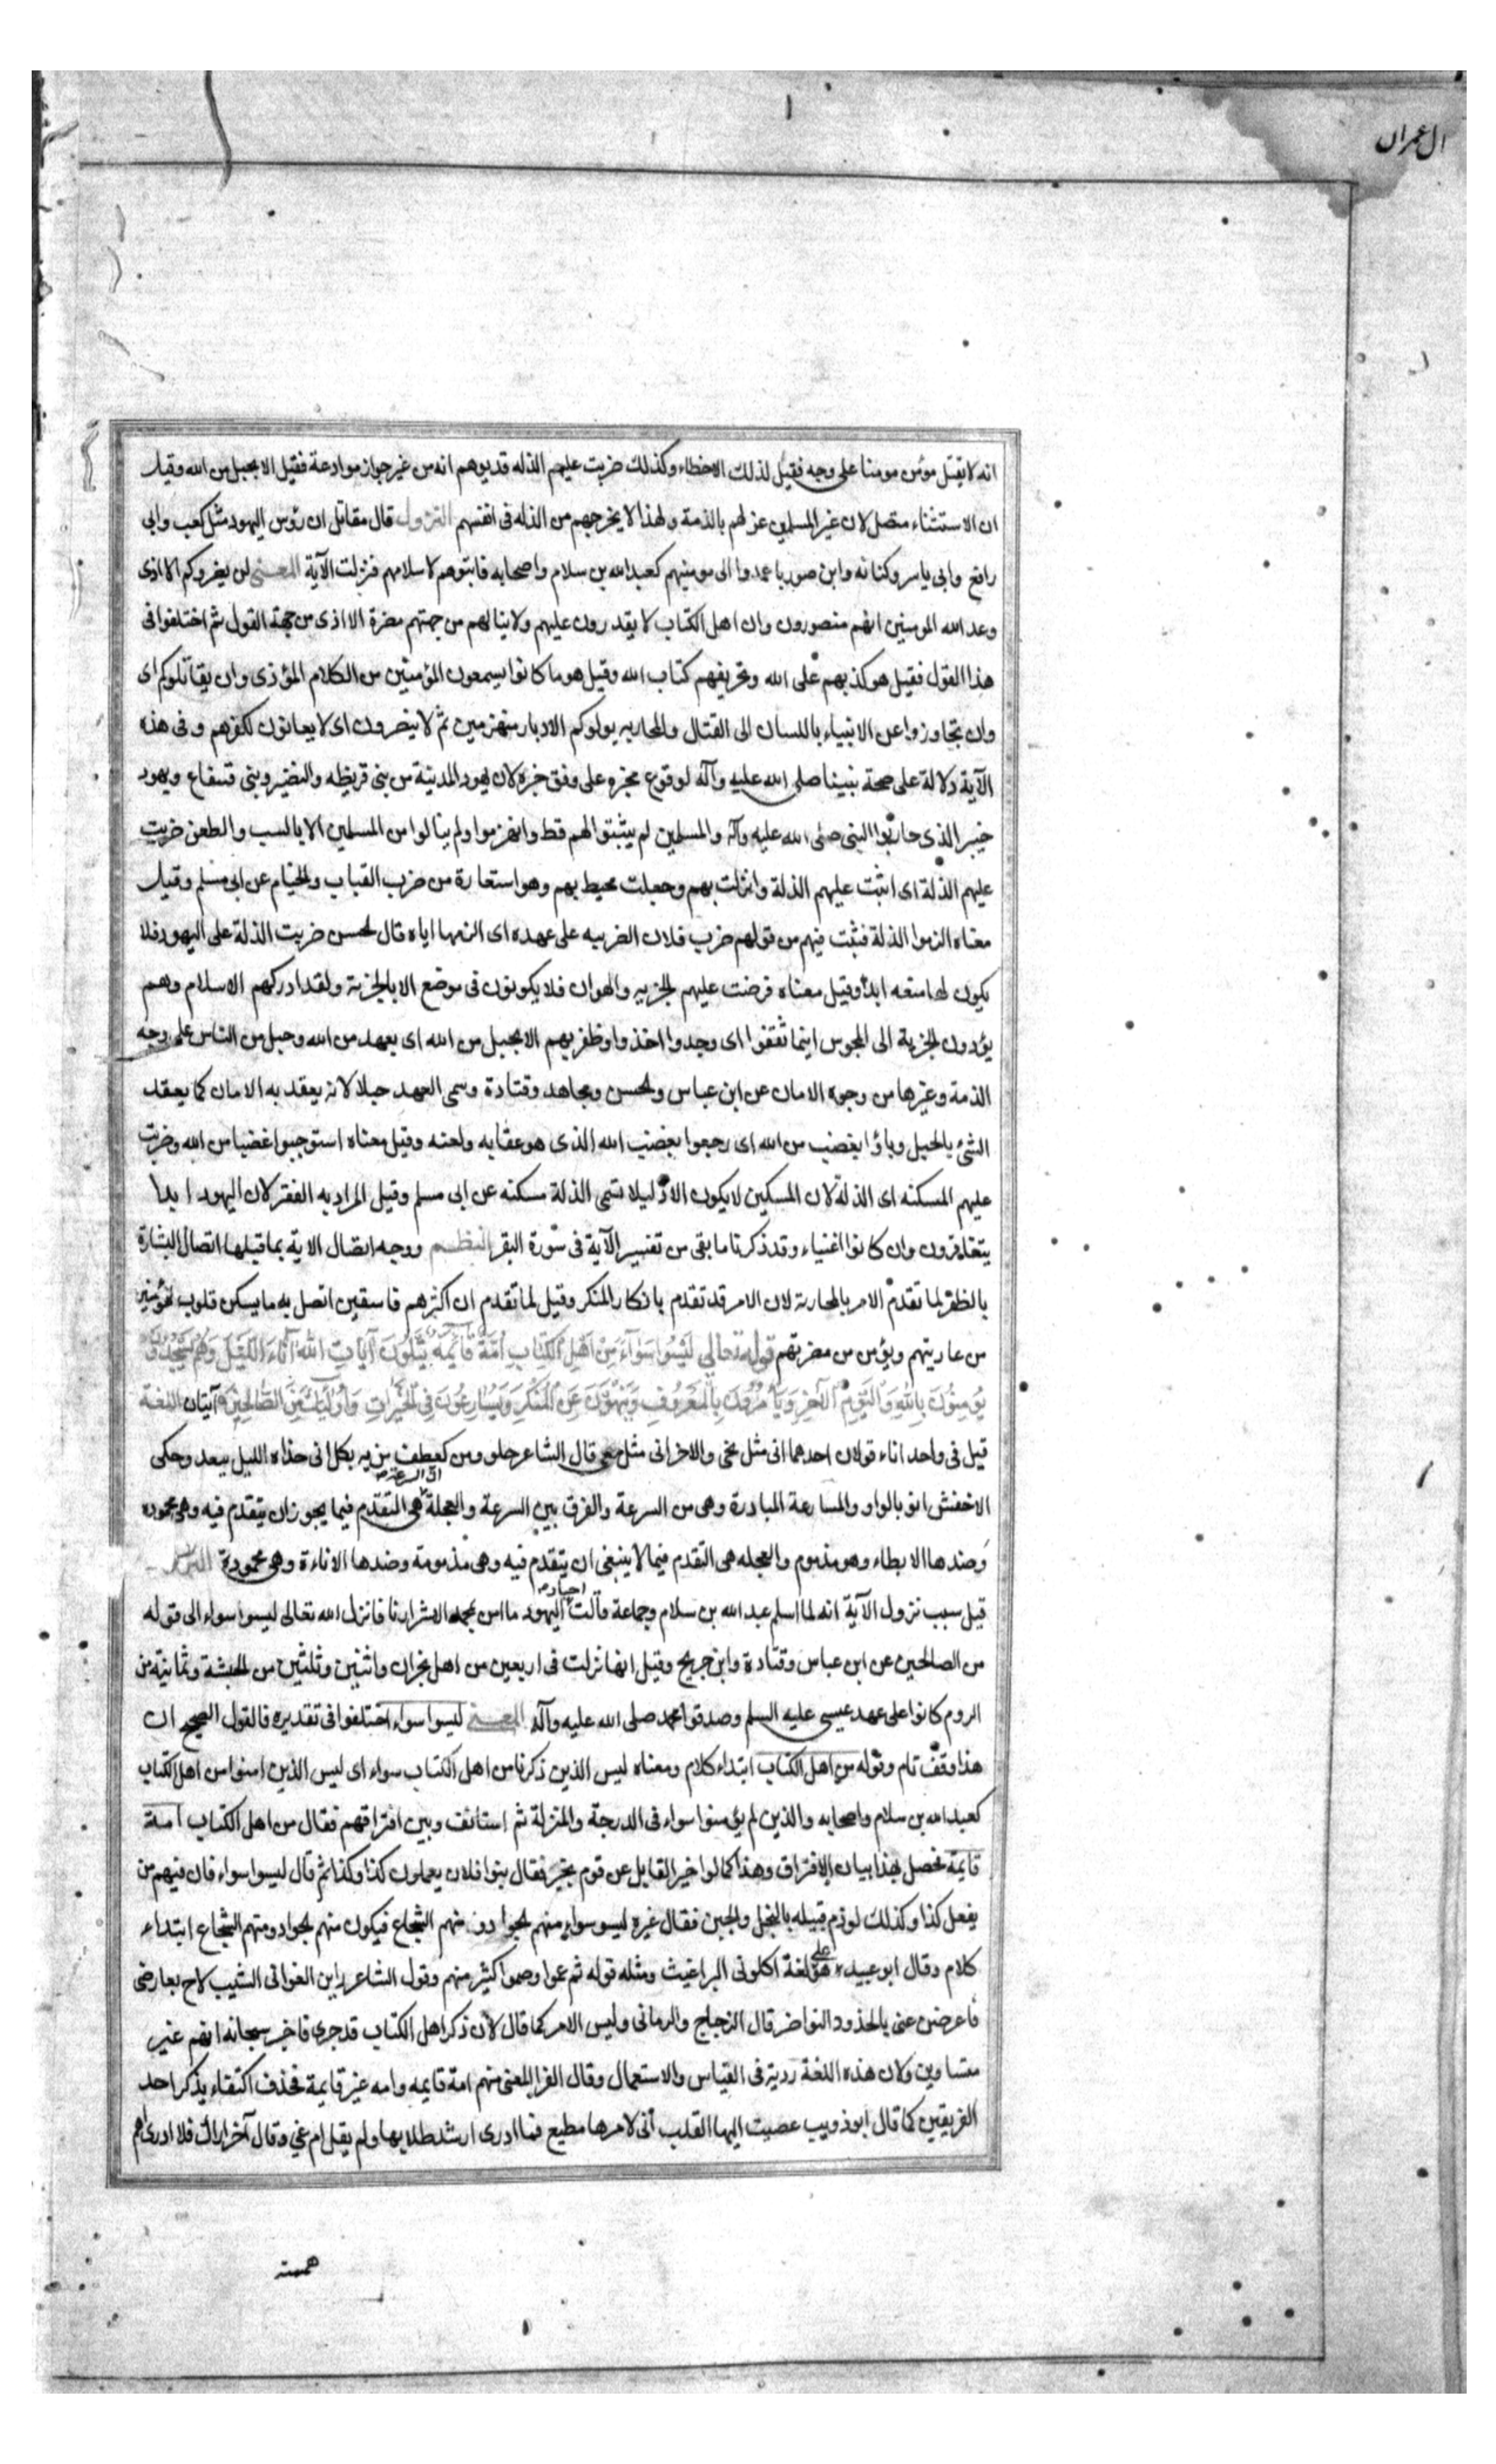 ال عمران
انه لا يقتل مؤمن مومنا على وجه فقيل لذلك الاخطاء وكذلك ضربت عليهم الذله قديوهم انه من غير جواز موادعة فقيل الا بحبل من الله وقيل
ان الاستثناء متصل لان غير المسلمين عزلهم بالذمة ولهذا لا يخرجهم من الذله فى انفسهم النزول قال مقاتل ان رؤس اليهود مثل كعب وابى
رافع وابى ياسر وكنانه وابن صوريا عمدوا الى مومنيهم كعبد الله بن سلام واصحابه فانبوهم لاسلامهم فنزلت الآية المعنى لن يضروكم الا اذى
وعد الله المومنين انهم منصورون وان اهل الكتاب لا يقدرون عليهم ولا ينالهم من جهتهم مضرة الا اذى من جهة القول ثم اختلفوا فى
هذا القول فقيل هو كذبهم على الله وتحريفهم كتاب الله وقيل هو ما كانوا يسمعون المؤمنين من الكلام المؤذى وان يقاتلوكم اى
وان تجاوزوا عن الانبياء باللسان الى القتال والمحاربه يولوكم الادبار منهزمين ثم لا ينصرون اى لا يعانون لكفرهم وفى هذه
الآية دلالة على صحة نبينا صلى الله عليه وآله لوقوع مخبره على وفق خبره لان يهود المدينة من بنى قريظه والنضير وبنى قينقاع ويهود
خيبر الذى حاربوا النبى صلى الله عليه وآله والمسلمين لم يثبتوا لهم قط وانهزموا ولم ينالوا من المسلمين الا بالسب والطعن ضربت
عليهم الذلة اى اثبت عليهم الذلة وانزلت بهم وجعلت محيط بهم وهو استعارة من ضرب القباب والخيام عن ابى مسلم وقيل
معناه الزموا الذلة فثبت فيهم من قولهم ضرب فلان الضريبه على عهده اى الزمها اياه قال الحسن ضربت الذلة على اليهود فلا
يكون لها منعه ابدا وقيل معناه فرضت عليهم الجزيه والهوان فلا يكونون فى موضع الا بالجزية ولقد ادركهم الاسلام وهم
يؤدون الجزية الى المجوس اينما ثقفوا اى وجدوا اخذوا وظفر بهم الا بحبل من الله اى بعهد من الله وحبل من الناس على وجه
الذمة وغيرها من وجوه الامان عن ابن عباس والحسن ومجاهد وقتادة وسمى العهد حبلا لانه يعقد به الامان كما يعقد
الشئ بالحبل وباؤا بغضب من الله اى رجعوا بغضب الله الذى هو عقابه ولعنه وقيل معناه استوجبوا غضبا من الله وضربت
عليهم المسكنه اى الذلة لان المسكين لا يكون الا ذليلا تسمى الذلة مسكنه عن ابى مسلم وقيل المراد به الفقر لان اليهود ابدا
يتفاقرون وان كانوا اغنياء وقد ذكرنا ما بقى من تفسير الآية فى سورة البقر النظم ووجه اتصال الاية بما قبلها اتصال البشارة
بالظفر لما تقدم الامر بالمحاربة لان الامر قد تقدم بانكار المنكر وقيل لما تقدم ان اكثرهم فاسقين اتصل به ما يسكن قلوب المؤمنين
من عاديتهم ويؤمن من مضرتهم قوله تعالى لَيْسُوا سَوَاءً مِنْ اَهْلِ الكِتَابِ اُمَّةٌ قَائِمَةٌ يَتْلُونَ آيَاتِ اللهِ آنَاءَ اللَّيْلِ وَهُمْ يَسْجُدُونَ
يُؤْمِنُونَ بِاللهِ وَالْيَوْمِ الْآخِرِ وَيَأْمُرُونَ بِالْمَعْرُوفِ وَيَنْهَوْنَ عَنِ الْمُنْكَرِ وَيُسَارِعُونَ فِي الْخَيْرَاتِ وَأُولَئِكَ مِنَ الصَّالِحِينَ آيتان اللغة
قيل فى واحد اناء قولان احدهما انى مثل نحى والاخر انى مثل معى قال الشاعر حلو ومر كعطف بكل انى حذاه الليل وحكى
الاخفش انو بالواو والمسارعة المبادرة وهى من السرعة والفرق بين السرعة والعجلة ان السرعة هى التقدم فيما يجوز ان يتقدم فيه وهى محموده
وضدها الابطاء وهو مذموم والعجله هى التقدم فيما لا ينبغى ان يتقدم فيه وهى مذمومة وضدها الاناءة وهى محمودة النزول
قيل سبب نزول الآية انه لما اسلم عبد الله بن سلام وجماعة قالت احبار اليهود ما امن بمحمد الا شرارنا فانزل الله تعالى ليسوا سواء الى قوله
من الصالحين عن ابن عباس وقتادة وابن جريج وقيل انها نزلت فى اربعين من اهل نجران واثنين وثلثين من الحبشة وثمانية من
الروم كانوا على عهد عيسى عليه السلم وصدقوا محمد صلى الله عليه وآله المعنى ليسوا سواء اختلفوا فى تقديره فالقول الصحيح ان
هذا وقف تام وقوله من اهل الكتاب ابتداء كلام ومعناه ليس الذين ذكرنا من اهل الكتاب سواء اى ليس الذين امنوا من اهل الكتاب
كعبد الله بن سلام واصحابه والذين لم يؤمنوا سواء فى الدرجة والمنزلة ثم استانف وبين افتراقهم فقال من اهل الكتاب امة
قايمة فحصل بهذا بيان الافتراق وهذا كما لو اخبر القايل عن قوم بخبر فقال بنوا فلان يعملون كذا وكذا ثم قال ليسوا سواء فان فيهم من
يفعل كذا وكذلك لو ذم قبيله بالبخل والجبن فقال غيره ليسو سواء منهم الجواد ومنهم الشجاع فيكون منهم الجواد ومنهم الشجاع ابتداء
كلام وقال ابو عبيده هو على لغة اكلونى البراغيث ومثله قوله ثم عموا وصموا كثير منهم وقول الشاعر راين الغوانى الشيب لاح بعارضى
فاعرضن عنى بالخدود النواضر قال الزجاج والرمانى وليس الامر كما قال لان ذكر اهل الكتاب قد جرى فاخبر سبحانه انهم غير
متساوين ولان هذه اللغة ردية فى القياس والاستعمال وقال الفرا المعنى منهم امة قايمه وامه غير قايمة فحذف اكتفاء بذكر احد
الفريقين كما قال ابو ذويب عصيت اليها القلب انى لامرها مطيع فما ادرى ارشد طلابها ولم يقل ام غى وقال آخر اراك فلا ادرى اهم
هممته